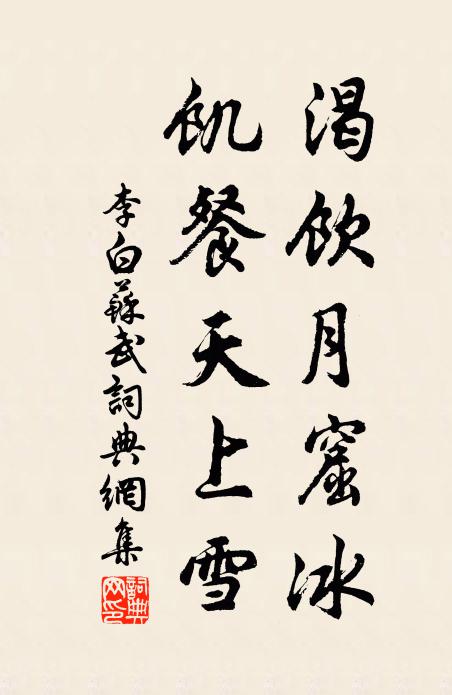 渴飲月窟冰
飢餐天上雪
李白蘇武詞典網集
詞典
网印